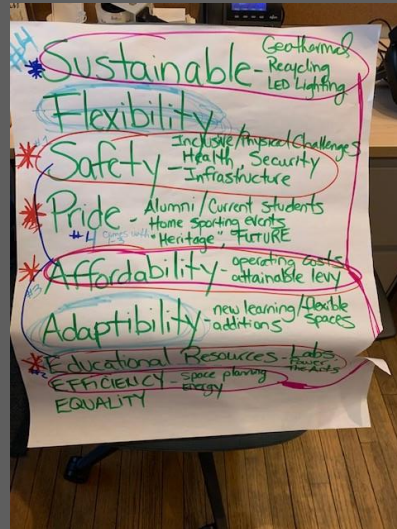 Geothermal
Sustainable - Recycling
LED Lighting
Flexibility
Inclusive/Physical Challenges
Safety - Health, Security
Infrastructure
Pride - Alumni/Current students
Home Sporting events
#4 "Heritage", FUTURE
Affordability - operating costs
attainable levy
#3
Adaptibility - new learning/flexible
additions spaces
Educational Resources - Labs
The Arts
EFFICIENCY - Space planning
Energy
EQUALITY